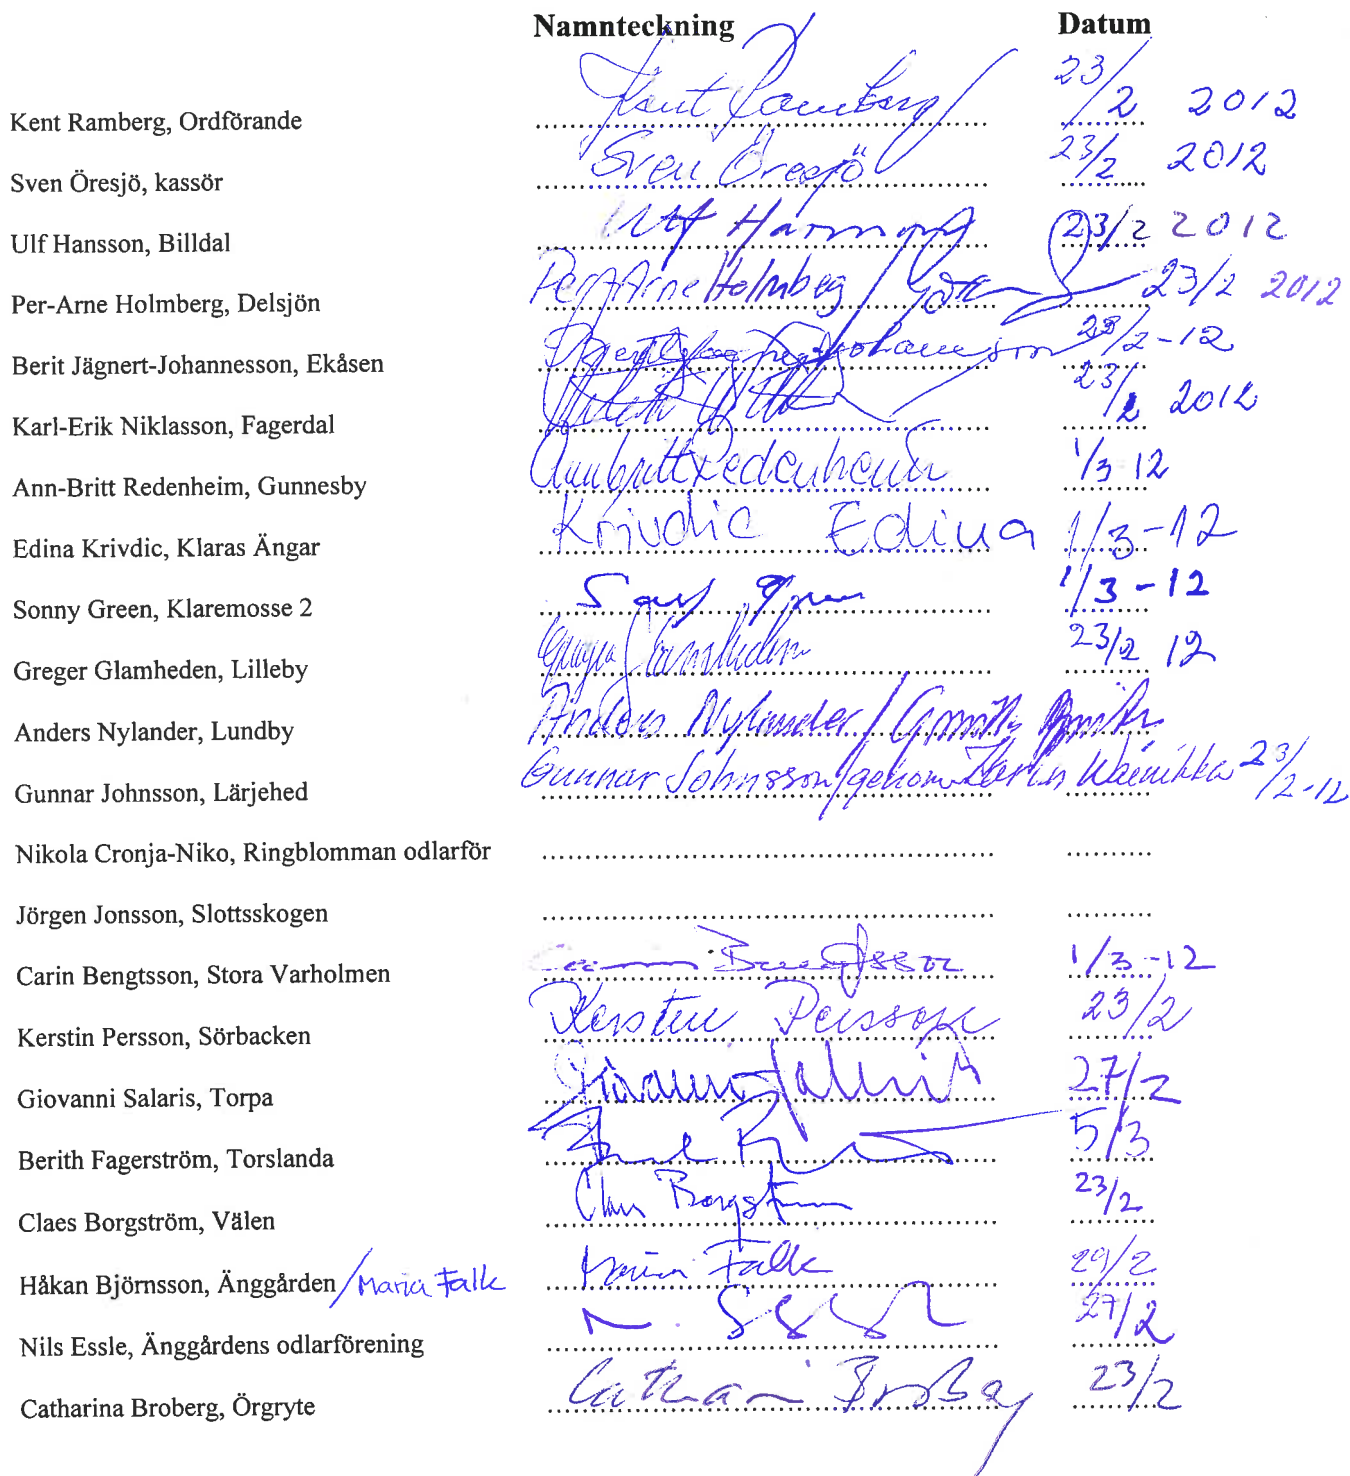 Namnteckning Datum
Kent Ramberg, Ordförande Kent Ramberg 23/2 2012
Sven Öresjö, kassör Sven Öresjö 23/2 2012
Ulf Hansson, Billdal Ulf Hansson 23/2 2012
Per-Arne Holmberg, Delsjön Per-Arne Holmberg / 23/2 2012
Berit Jägnert-Johannesson, Ekåsen 23/2-12
Karl-Erik Niklasson, Fagerdal 23/2 2012
Ann-Britt Redenheim, Gunnesby Annbritt Redenheim 1/3 12
Edina Krivdic, Klaras Ängar Krivdic Edina 1/3-12
Sonny Green, Klaremosse 2 1/3-12
Greger Glamheden, Lilleby Greger Glamheden 23/2 12
Anders Nylander, Lundby Anders Nylander /
Gunnar Johnsson, Lärjehed Gunnar Johnsson/genom Karin Wainikka 23/2-12
Nikola Cronja-Niko, Ringblomman odlarför
Jörgen Jonsson, Slottsskogen
Carin Bengtsson, Stora Varholmen Carin Bengtsson 1/3-12
Kerstin Persson, Sörbacken Kerstin Persson 23/2
Giovanni Salaris, Torpa Giovanni Salaris 27/2
Berith Fagerström, Torslanda 5/3
Claes Borgström, Välen Claes Borgström 23/2
Håkan Björnsson, Änggården /Maria Falk Maria Falk 29/2
Nils Essle, Änggårdens odlarförening N. Essle 27/2
Catharina Broberg, Örgryte Catharina Broberg 23/2